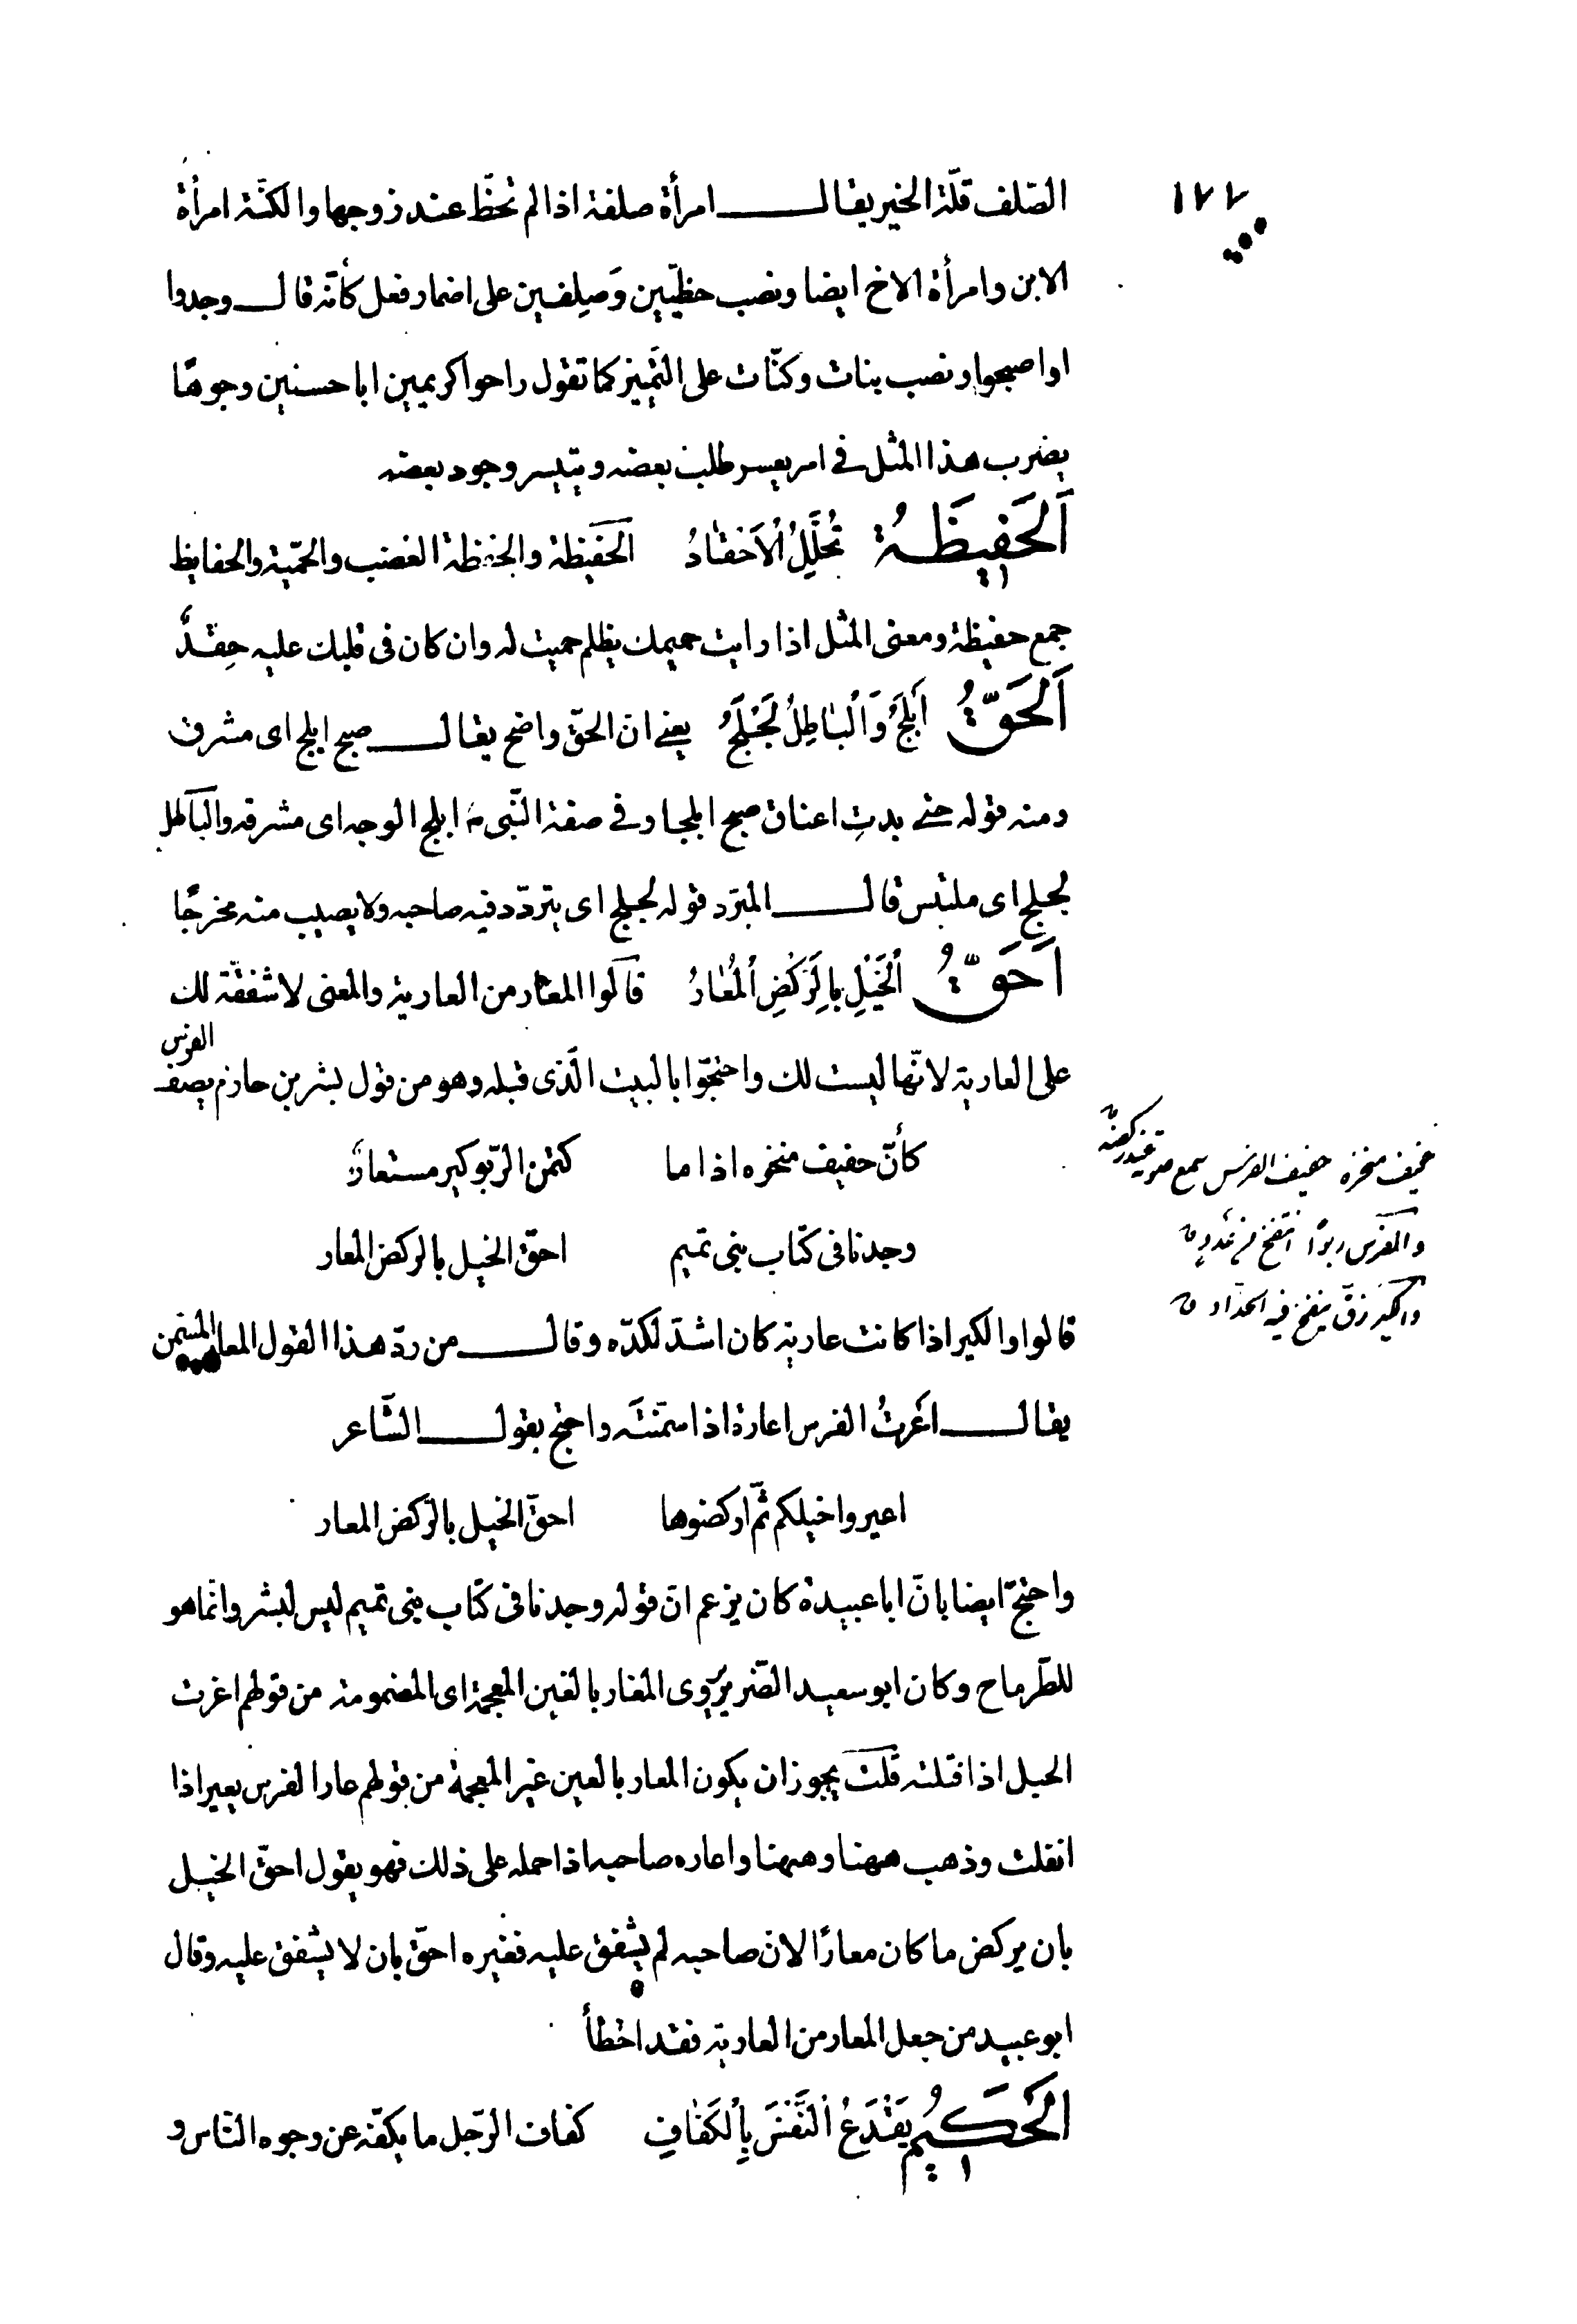 ١٧٧
الصّلف قلّة الخير يقال امرأة صلفة اذا لم تحظّ عند زوجها والكنّة امرأة
الابن وامرأة الاخ ايضا ونصب حظيّين وَصلِفين على اضمار فعل كأنّه قال وجدوا
او اصبحوا ونصب بنات وكنّات على التّميز كما تقول راحوا كريمين ابا حسنين وجوهًا
يضرب هذا المثل فى امر يعسر طلب بعضه ويتيسر وجود بعضه
اَلحَفِيظَةُ تُحَلِّلُ اْلاَحْقٰادُ الحَفيظة والحفظة الغضب والحَمّية والحفايظ
جمع حفيظة ومعنى المثل اذا رايت حميمك يظلم حميت له وان كان فى قلبك عليه حِقدٌ
اَلحَقُّ اَبْلَجُ وَاْلبٰاطِلُ لَجْلَجُ يعنى انّ الحقّ واضح يقال صبح ابلج اى مشرق
ومنه قوله حتى بدتِ اعناق صبح ابلجا وفى صفة النّبى ابلج الوجه اى مشرقه والباطل
لجلج اى ملتبس قال المبّرد قوله لجلج اى يتردّد فيه صاحبه ولا يصيب منه مخرجًا
اَحَقُّ اْلخَيْلِ بِالرَكْضِ اْلمُعٰارُ قالوا المعار من العارية والمعنى لا شفقة لك
على العارية لانّها ليست لك واحتجّوا بالبيت الّذى قبله وهو من قول بشر بن حازم يصف الفرس
كأنّ حفيف منخره اذا ما كتمن الرّبو كير مستعارٌ
وجدنا فى كتاب بنى تميم احقّ الخيل بالركض المعار
حفيف منخره حفيف الفرس يسمع صوته عند ركضه
والفرس ربوًا انتفخ من عدو
والكير زقّ ينفخ فيه الحدّاد
قالوا والكير اذا كانت عارية كان اشدّ لكدّه وقال من ردّ هذا القول المعار المسمّن
يقال اعَرتُ الفرس اعارة اذا سمّنته واحتج بقول الشّاعر
اعيروا خيلكم ثمّ اركضوها احقّ الخيل بالرّكض المعار
واحتجّ ايضا بانّ ابا عبيدة كان يزعم انّ قوله وجدنا فى كتاب بنى تميم ليس لبشر وانّما هو
للطّرماح وكان ابو سعيد الضّرير يَروى المغار بالغين المعجمة اى المضمومة من قولهم اغرت
الحبل اذا فتلته قلت يجوز ان يكون المعار بالعين غير المعجمة من قولهم عار الفرس يعير اذا
انفلت وذهب ههنا وههنا واعاره صاحبه اذا حمله على ذلك فهو يقول احقّ الخيل
بان يركض ما كان معارًا لانّ صاحبه لم يشفق عليه فغيره احقّ بان لا يشفق عليه وقال
ابو عبيد من جعل المعار من العارية فقد اخطأ
اَلحَكِيمُ يَقْدَعُ اْلنَّفْسَ بِاْلكَفٰافِ كفاف الرّجل ما يكفّه عن وجوه النّاس و